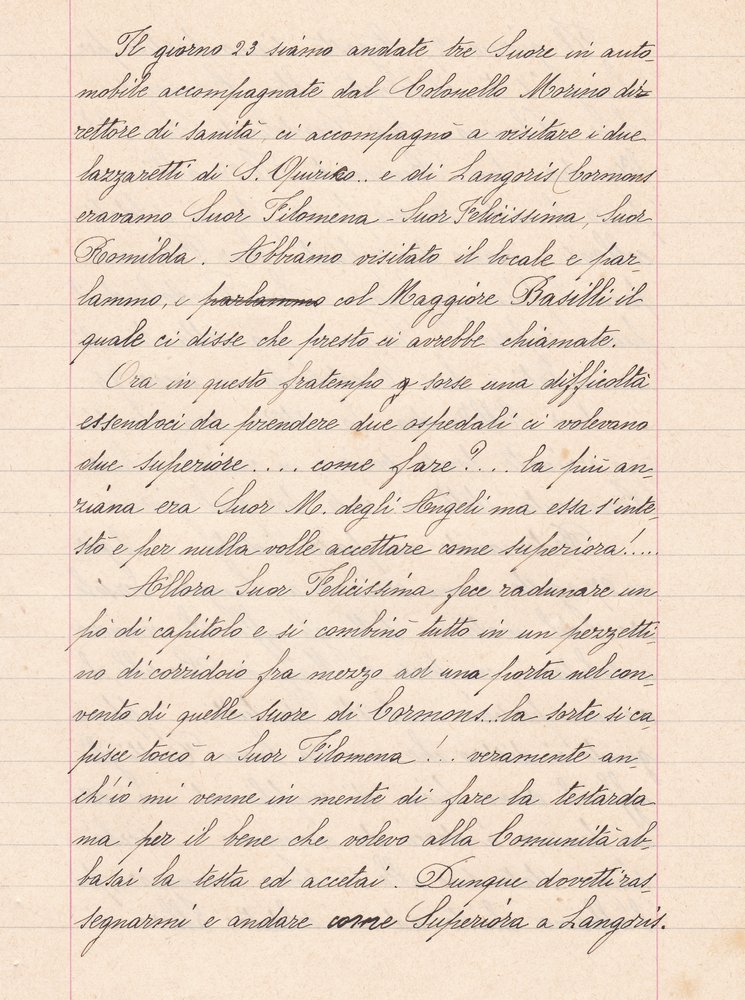 Il giorno 23 siamo andate tre Suore in auto-
mobile accompagnate dal Colonello Morino di-
rettore di sanità, ci accompagnò a visitare i due
lazzaretti di S. Quirico.. e di Langoris (Cormons
eravamo Suor Filomena - Suor Felicissima, Suor
Romilda. Abbiamo visitato il locale e par-
lammo, e parlammo col Maggiore Basilli il
quale ci disse che presto ci avrebbe chiamate.
Ora in questo fratempo sorse una difficoltà
essendoci da prendere due ospedali ci volevano
due superiore.... come fare?... la più an-
ziana era Suor M. degli Angeli ma essa s'inte-
stò e per nulla volle accettare come superiora!....
Allora Suor Felicissima fece radunare un
pò di capitolo e si combinò tutto in un pezzetti-
no di corridoio fra mezzo ad una porta nel con-
vento di quelle suore di Cormons...la sorte si ca-
pisce toccò a Suor Filomena!... veramente an-
ch'io mi venne in mente di fare la testarda
ma per il bene che volevo alla Comunità ab-
basai la testa ed accetai. Dunque dovetti ras-
segnarmi e andare come Superiora a Langoris.